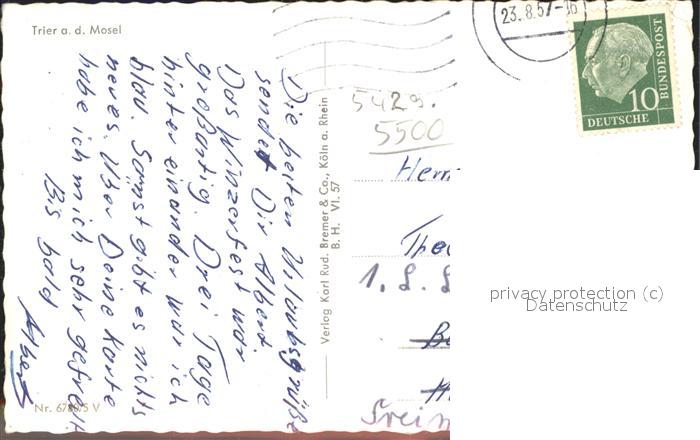 Trier a. d. Mosel
Die besten Urlaubsgrüße
sendet Dir Albert.
Das Winzerfest war
großartig. Drei Tage
hinter einander war ich
blau. Sonst gibt es nichts
neues. Über Deine Karte
habe ich mich sehr gefreut.
Bis bald
Albert
Nr. 678/5 V
Verlag Karl Rud. Bremer & Co., Köln a. Rhein
B. H. VI. 57
23.8.57-16
DEUTSCHE
BUNDESPOST
10
5429.
5500
Herrn
Theo
1. S. S
Be
Frein
privacy protection (c)
Datenschutz